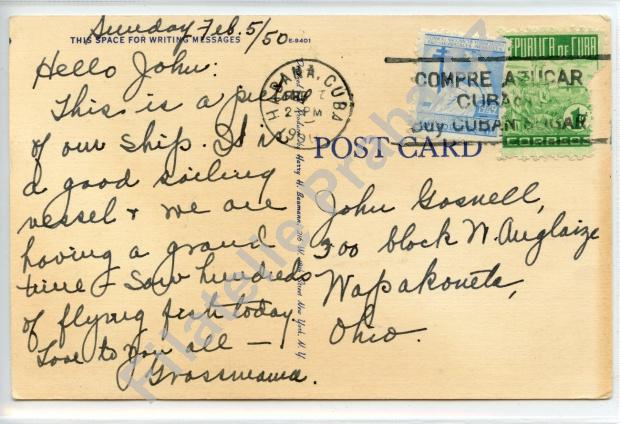 Sunday Feb. 5/50
THIS SPACE FOR WRITING MESSAGES E-9401
Hello John:
This is a picture
of our ship. It is
a good sailing
vessel & we are
having a grand
time & saw hundreds
of flying fish today.
Love to you all —
Grossmama.
HABANA, CUBA
2 - PM
REPUBLICA DE CUBA
1¢
CORREOS
COMPRE AZUCAR
CUBANO
Buy CUBAN SUGAR
POST CARD
John Gosnell,
300 block N. Auglaize
Wapakoneta,
Ohio.
Harry H. Baumann, 216 W. Street New York, N. Y.
Filatelie Praha.cz